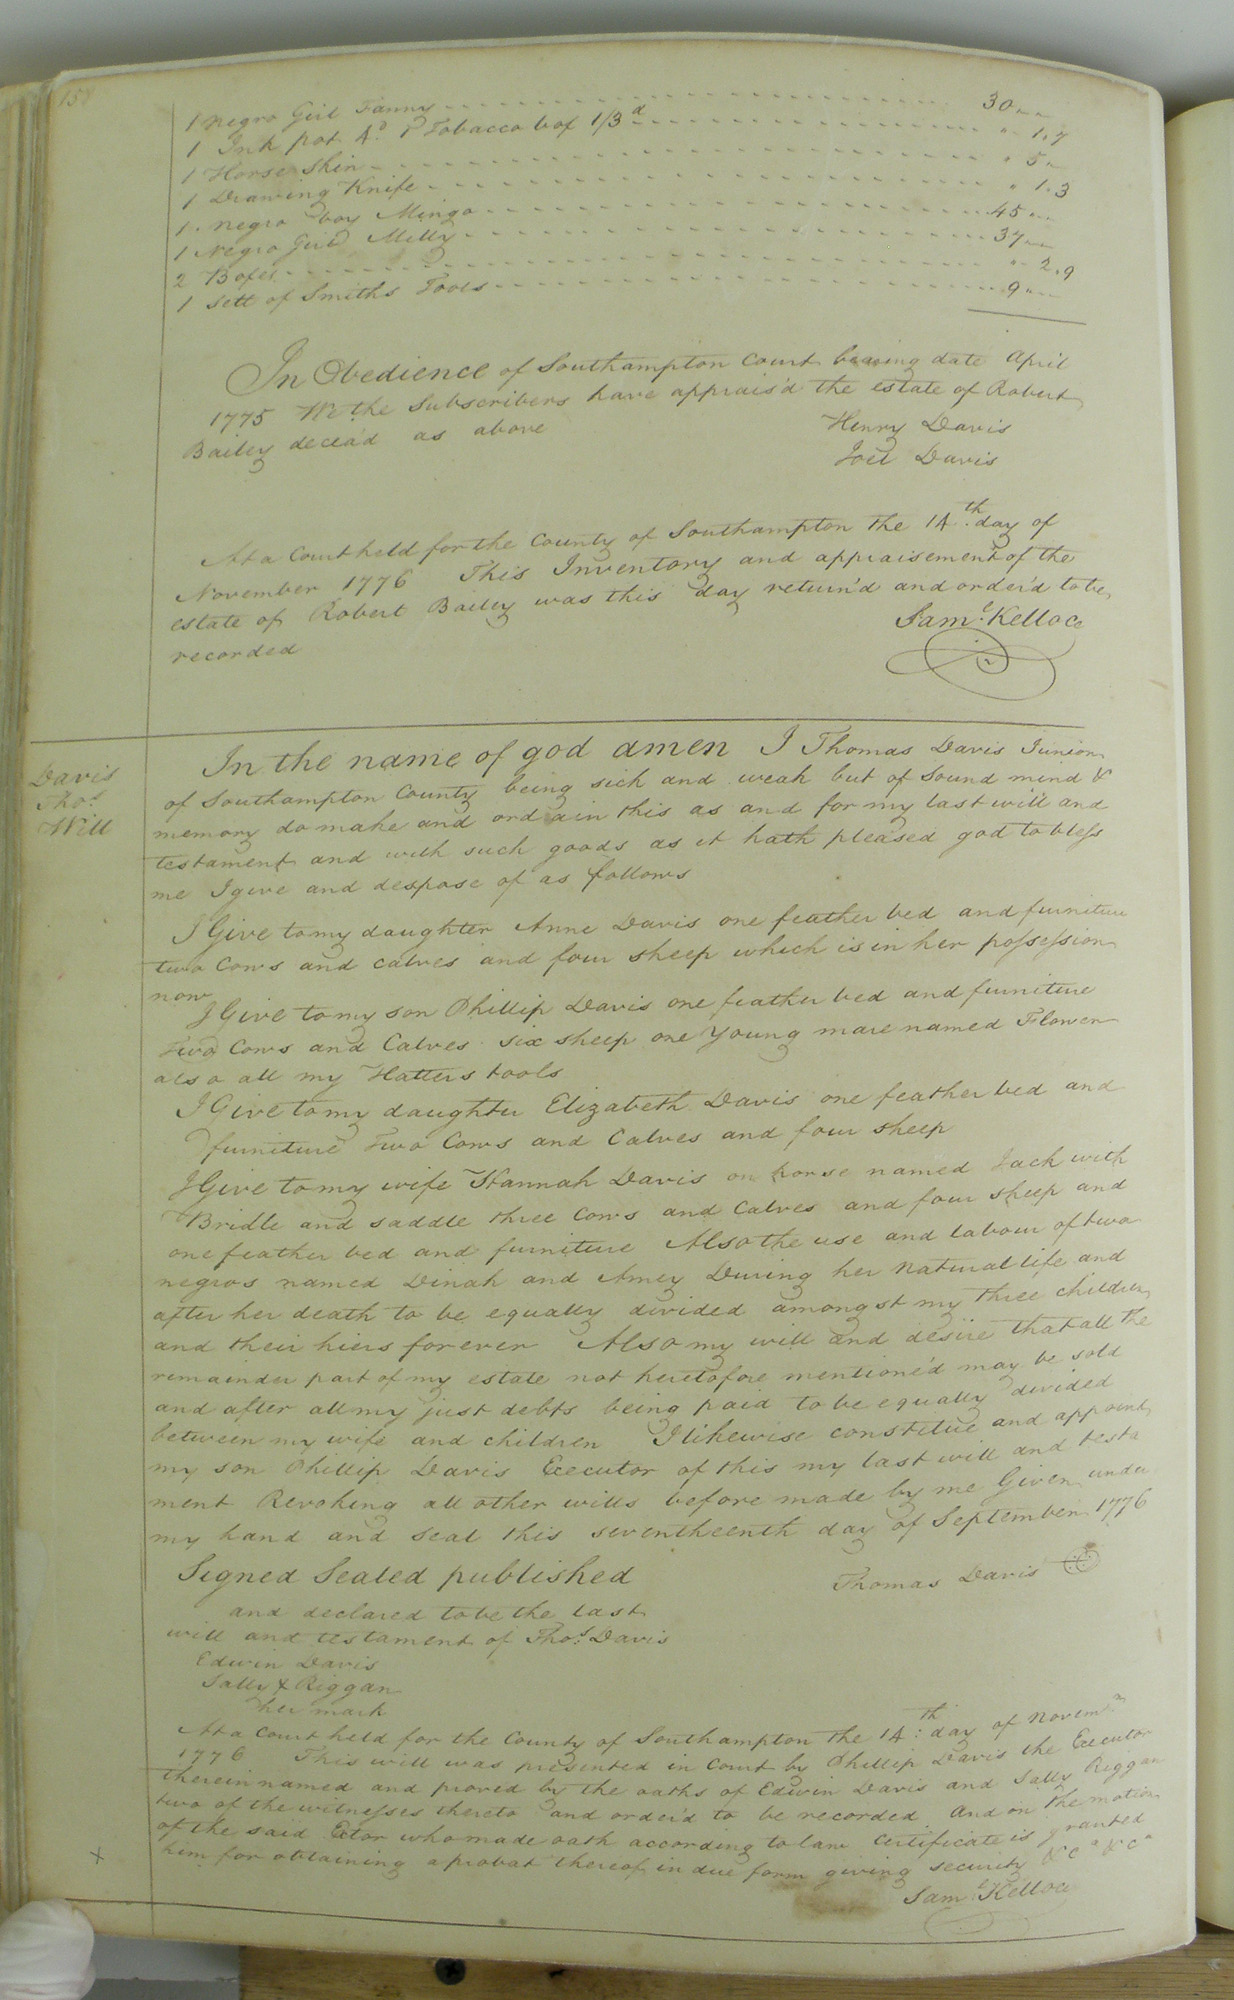 158
1 negro Girl Fanny 30 " "
1 Ink pot 4d 1 Tobacco box 1/3d " 1.7
1 Horse Skin " 5 "
1 Drawing Knife " 1.3
1 negro boy Mingo 45 " "
1 Negro Girl Milly 37 " "
2 Boxes " 2.9
1 sett of Smiths Tools 9 " "
In Obedience of Southampton Court bearing date April
1775 We the Subscribers have apprais'd the estate of Robert
Bailey deceas'd as above
Henry Davis
Joel Davis
At a Court held for the County of Southampton the 14th day of
November 1776 This Inventory and appraisement of the
estate of Robert Bailey was this day return'd and order'd to be
recorded
Saml Kelloc
Davis
Thos
Will
In the name of god amen I Thomas Davis Junior
of Southampton County being sick and weak but of Sound mind &
memory do make and ordain this as and for my last will and
testament and with such goods as it hath pleased god to bless
me I give and despose of as follows
I Give to my daughter Anne Davis one feather bed and furniture
two Cows and calves and four sheep which is in her possession
now
I Give to my son Phillip Davis one feather bed and furniture
Two Cows and Calves six sheep one Young mare named Flower
also all my Hatters tools
I Give to my daughter Elizabeth Davis one feather bed and
furniture Two Cows and Calves and four sheep
I Give to my wife Hannah Davis on horse named Jack with
Bridle and saddle three Cows and Calves and four sheep and
one feather bed and furniture Also the use and labour of two
negros named Dinah and Amey During her natural life and
after her death to be equally divided amongst my three children
and their hiers forever Also my will and desire that all the
remainder part of my estate not heretofore mentione'd may be sold
and after all my just debts being paid to be equally divided
between my wife and children I likewise constitue and appoint
my son Phillip Davis Executor of this my last will and testa
ment Revoking all other wills before made by me Given under
my hand and Seal this seventheenth day of September 1776
Signed Sealed published
Thomas Davis
and declared to be the last
will and testament of Thos Davis
Edwin Davis
Sally X Riggan
her mark
At a Court held for the County of Southampton the 14th day of Novemr
1776 This will was presented in Court by Phillip Davis the Executor
therein named and proved by the oaths of Edwin Davis and Sally Riggan
two of the witnesses thereto and order'd to be recorded And on the motion
of the said Exctor who made oath according to law Certificate is granted
him for obtaining a probat thereof in due form giving security &ca &ca
X
Saml Kelloc